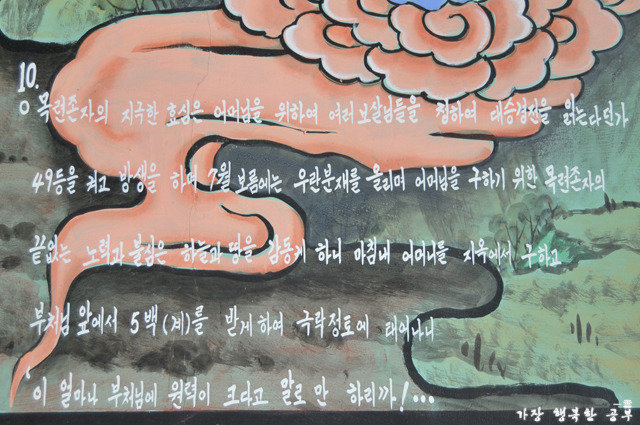 10.
○ 목련존자의 지극한 효심은 어머님을 위하여 여러보살님들을 청하여 대승경전을 읽는다던가
49등을 켜고 방생을 하며 7월 보름에는 우란분재를 올리며 어머님을 구하기 위한 목련존자의
끝없는 노력과 불심은 하늘과 땅을 감동케 하니 마침내 어머니를 지옥에서 구하고
부처님 앞에서 5백(계)를 받게하여 극락정토에 태어나니
이 얼마나 부처님에 원력이 크다고 말로 만 하리까!...
가장 행복한 공부